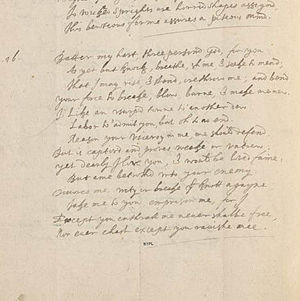 To wicked sprights are horrid shapes assignd,
This beauteous forme assures a piteous mind.
16.
Batter my hart, three person'd God, for you
As yet but knock, breathe, shine & seeke to mend;
That I may rise, & stand, orethrow me; and bend
your force to breake, blow, burne, & make me new.
I like an usurp'd towne to another dew
Labor to'admit you, but oh to no end.
Reason your viceroy in me, me should defend
But is captiv'd and proves weake or untrew.
yet dearly I love you, & would be lov'd faine,
But ame betroth'd unto your enemy
Divorce me, unty or breake that knott agayne
Take me to you, emprison me, for I
Except you enthrall me never shall be free,
Nor ever chast except you ravishe mee.
NYPL